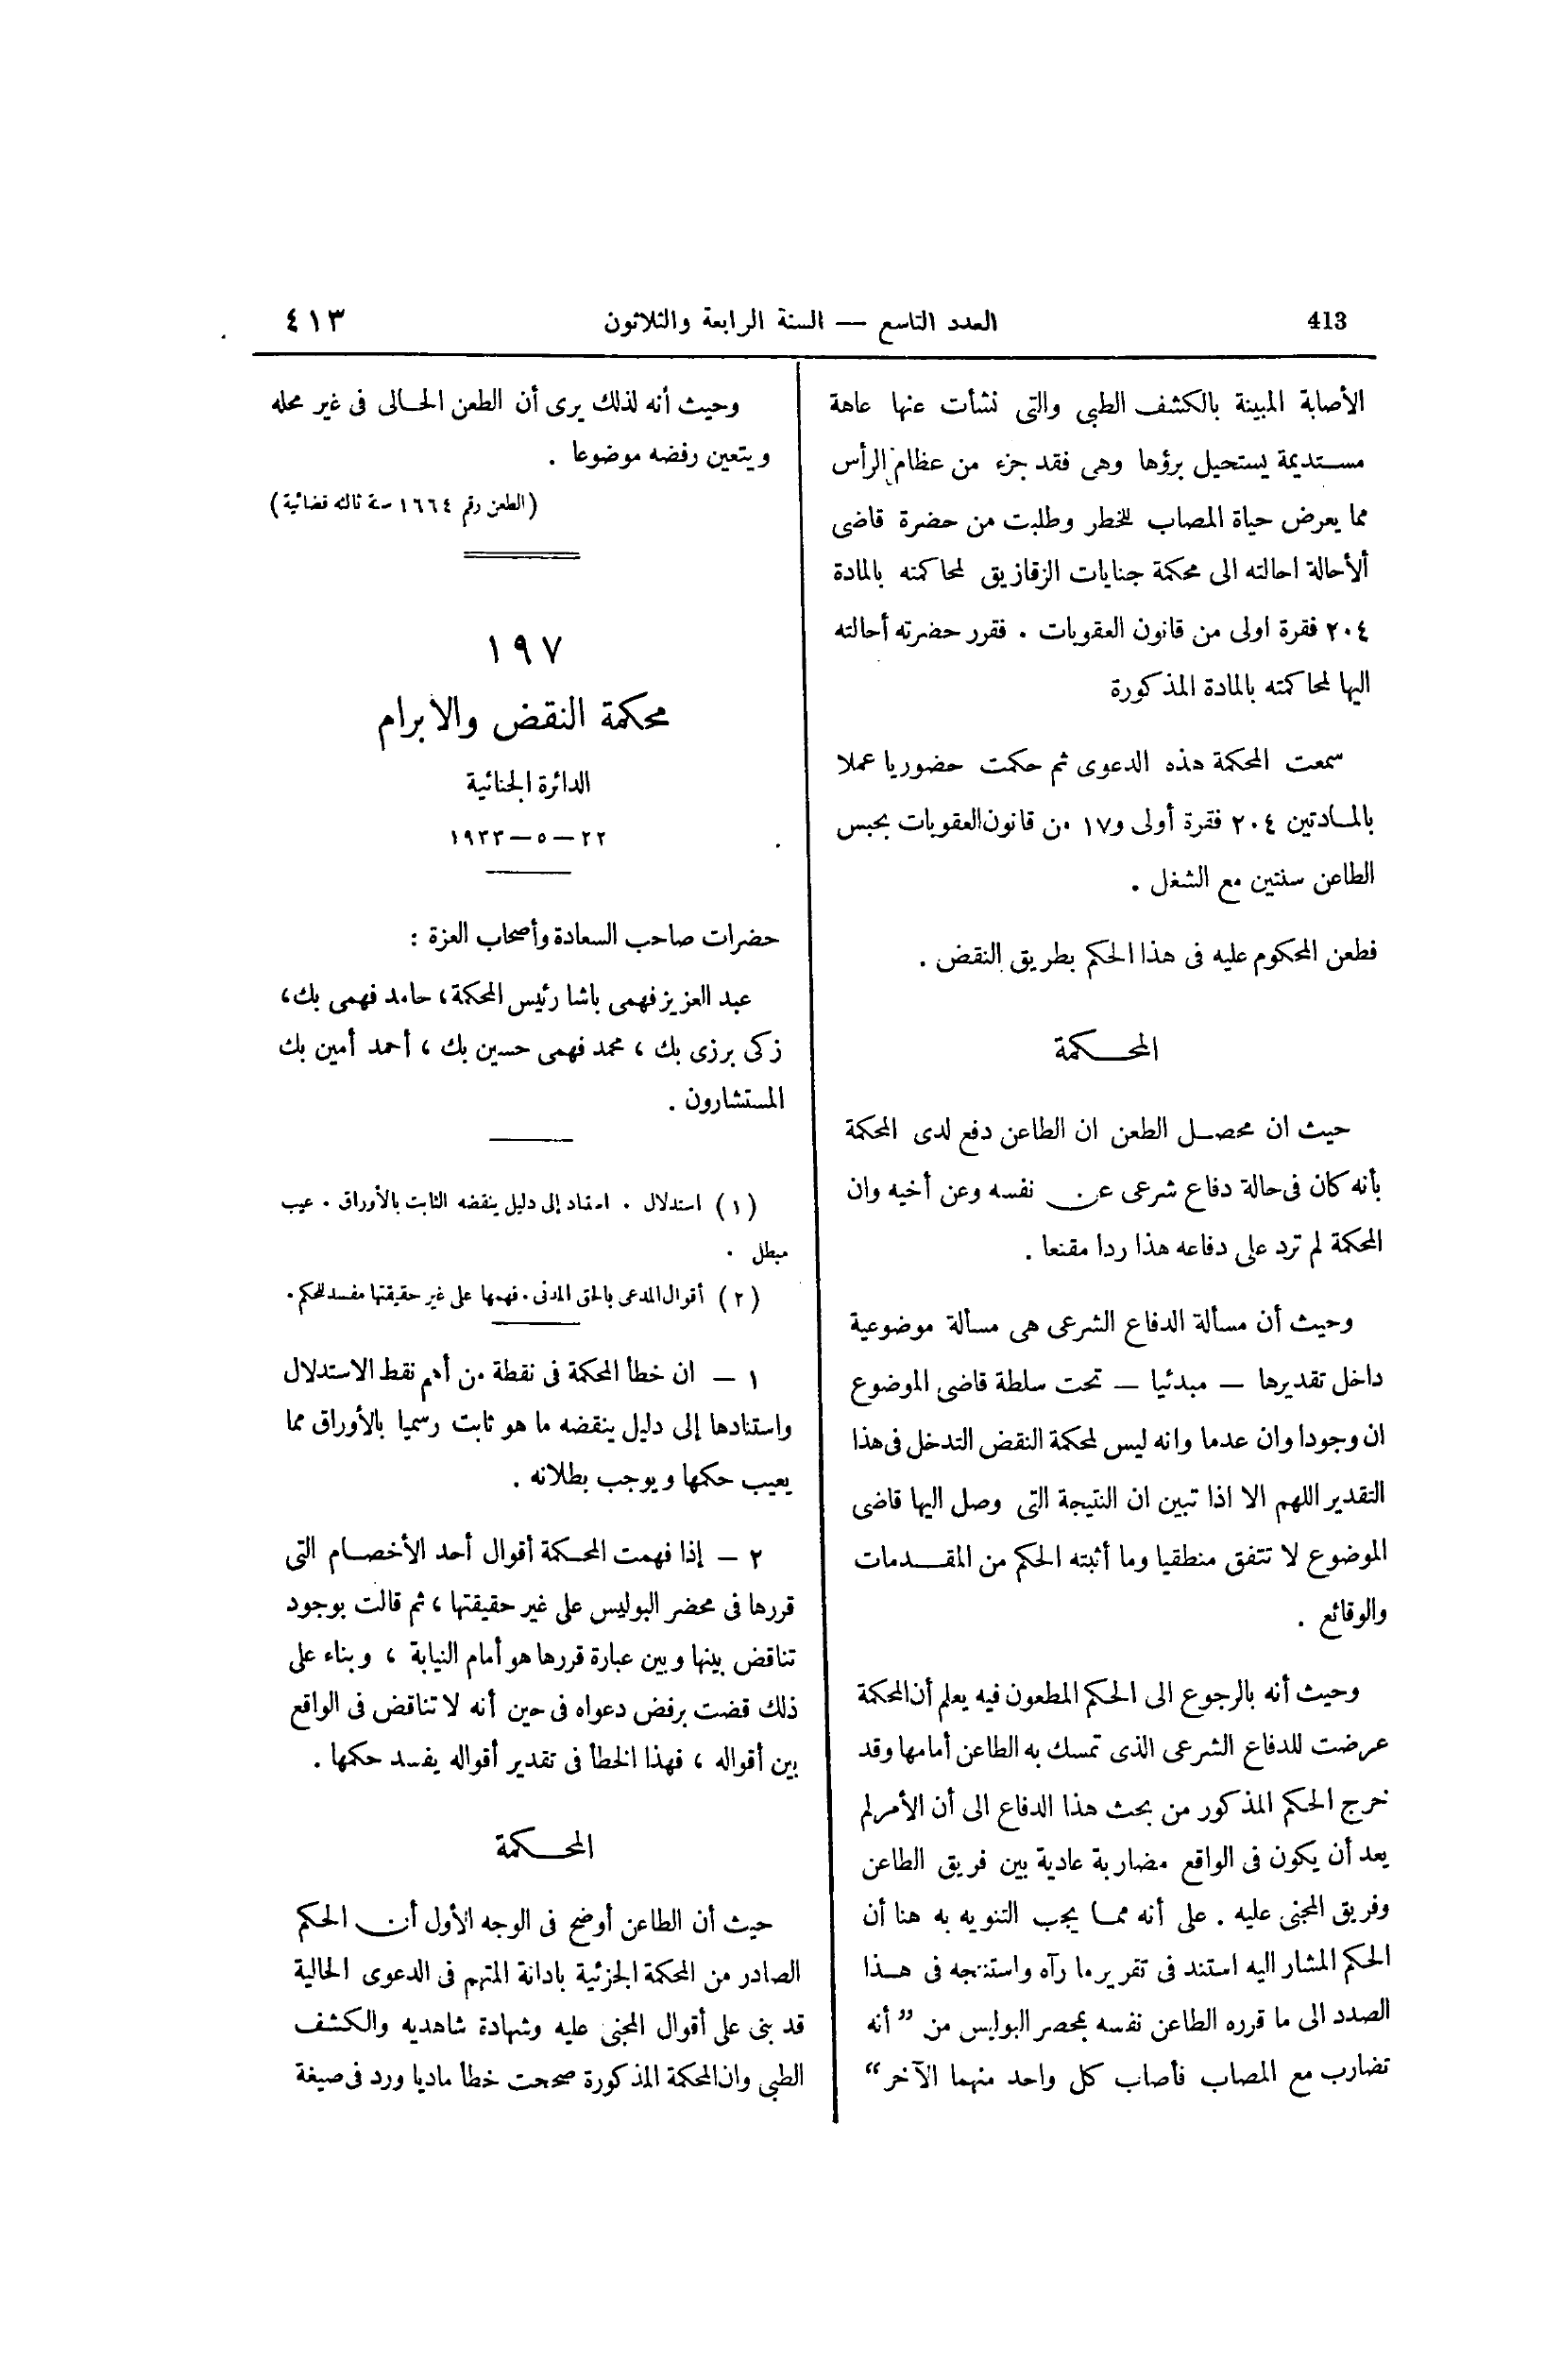 413
العدد التاسع — السنة الرابعة والثلاثون
٤١٣
الأصابة المبينة بالكشف الطبى والتى نشأت عنها عاهة
مستديمة يستحيل برؤها وهى فقد جزء من عظام الرأس
مما يعرض حياة المصاب للخطر وطلبت من حضرة قاضى
ألأحالة احالته الى محكمة جنايات الزقازيق لمحاكمته بالمادة
٢٠٤ فقرة اولى من قانون العقوبات . فقرر حضرته أحالته
اليها لمحاكمته بالمادة المذكورة
سمعت المحكمة هذه الدعوى ثم حكمت حضوريا عملا
بالمادتين ٢٠٤ فقرة أولى و١٧ من قانون العقوبات بحبس
الطاعن سنتين مع الشغل .
فطعن المحكوم عليه فى هذا الحكم بطريق النقض .
المحكمة
حيث ان محصل الطعن ان الطاعن دفع لدى المحكمة
بأنه كان فى حالة دفاع شرعى عن نفسه وعن أخيه وان
المحكمة لم ترد على دفاعه هذا ردا مقنعا .
وحيث أن مسألة الدفاع الشرعى هى مسألة موضوعية
داخل تقديرها — مبدئيا — تحت سلطة قاضى الموضوع
ان وجودا وان عدما وانه ليس لمحكمة النقض التدخل فى هذا
التقدير اللهم الا اذا تبين ان النتيجة التى وصل اليها قاضى
الموضوع لا تتفق منطقيا وما أثبته الحكم من المقدمات
والوقائع .
وحيث أنه بالرجوع الى الحكم المطعون فيه يعلم أن المحكمة
عرضت للدفاع الشرعى الذى تمسك به الطاعن أمامها وقد
خرج الحكم المذكور من بحث هذا الدفاع الى أن الأمر لم
يعد أن يكون فى الواقع مضاربة عادية بين فريق الطاعن
وفريق المجنى عليه . على أنه مما يجب التنويه به هنا أن
الحكم المشار اليه استند فى تقرير ما رآه واستنتجه فى هذا
الصدد الى ما قرره الطاعن نفسه بمحضر البوليس من ” أنه
تضارب مع المصاب فأصاب كل واحد منهما الآخر “
وحيث أنه لذلك يرى أن الطعن الحالى فى غير محله
ويتعين رفضه موضوعا .
(الطعن رقم ١٦٦٤ سنة ثالثه قضائية)
١٩٧
محكمة النقض والابرام
الدائرة الجنائية
٢٢ — ٥ — ١٩٣٣
حضرات صاحب السعادة وأصحاب العزة :
عبد العزيز فهمى باشا رئيس المحكمة، حامد فهمى بك،
زكى برزى بك ، محمد فهمى حسين بك ، أحمد أمين بك
المستشارون .
(١) استدلال . استناد إلى دليل ينقضه الثابت بالأوراق . عيب
مبطل .
(٢) أقوال المدعى بالحق المدنى . فهمها على غير حقيقتها مفسد للحكم .
١ — ان خطأ المحكمة فى نقطة من أهم نقط الاستدلال
واستنادها إلى دليل ينقضه ما هو ثابت رسميا بالأوراق مما
يعيب حكمها ويوجب بطلانه .
٢ — إذا فهمت المحكمة أقوال أحد الأخصام التى
قررها فى محضر البوليس على غير حقيقتها ، ثم قالت بوجود
تناقض بينها وبين عبارة قررها هو أمام النيابة ، وبناء على
ذلك قضت برفض دعواه فى حين أنه لا تناقض فى الواقع
بين أقواله ، فهذا الخطأ فى تقدير أقواله يفسد حكمها .
المحكمة
حيث أن الطاعن أوضح فى الوجه الأول أن الحكم
الصادر من المحكمة الجزئية بادانة المتهم فى الدعوى الحالية
قد بنى على أقوال المجنى عليه وشهادة شاهديه والكشف
الطبى وان المحكمة المذكورة صححت خطأ ماديا ورد فى صيغة